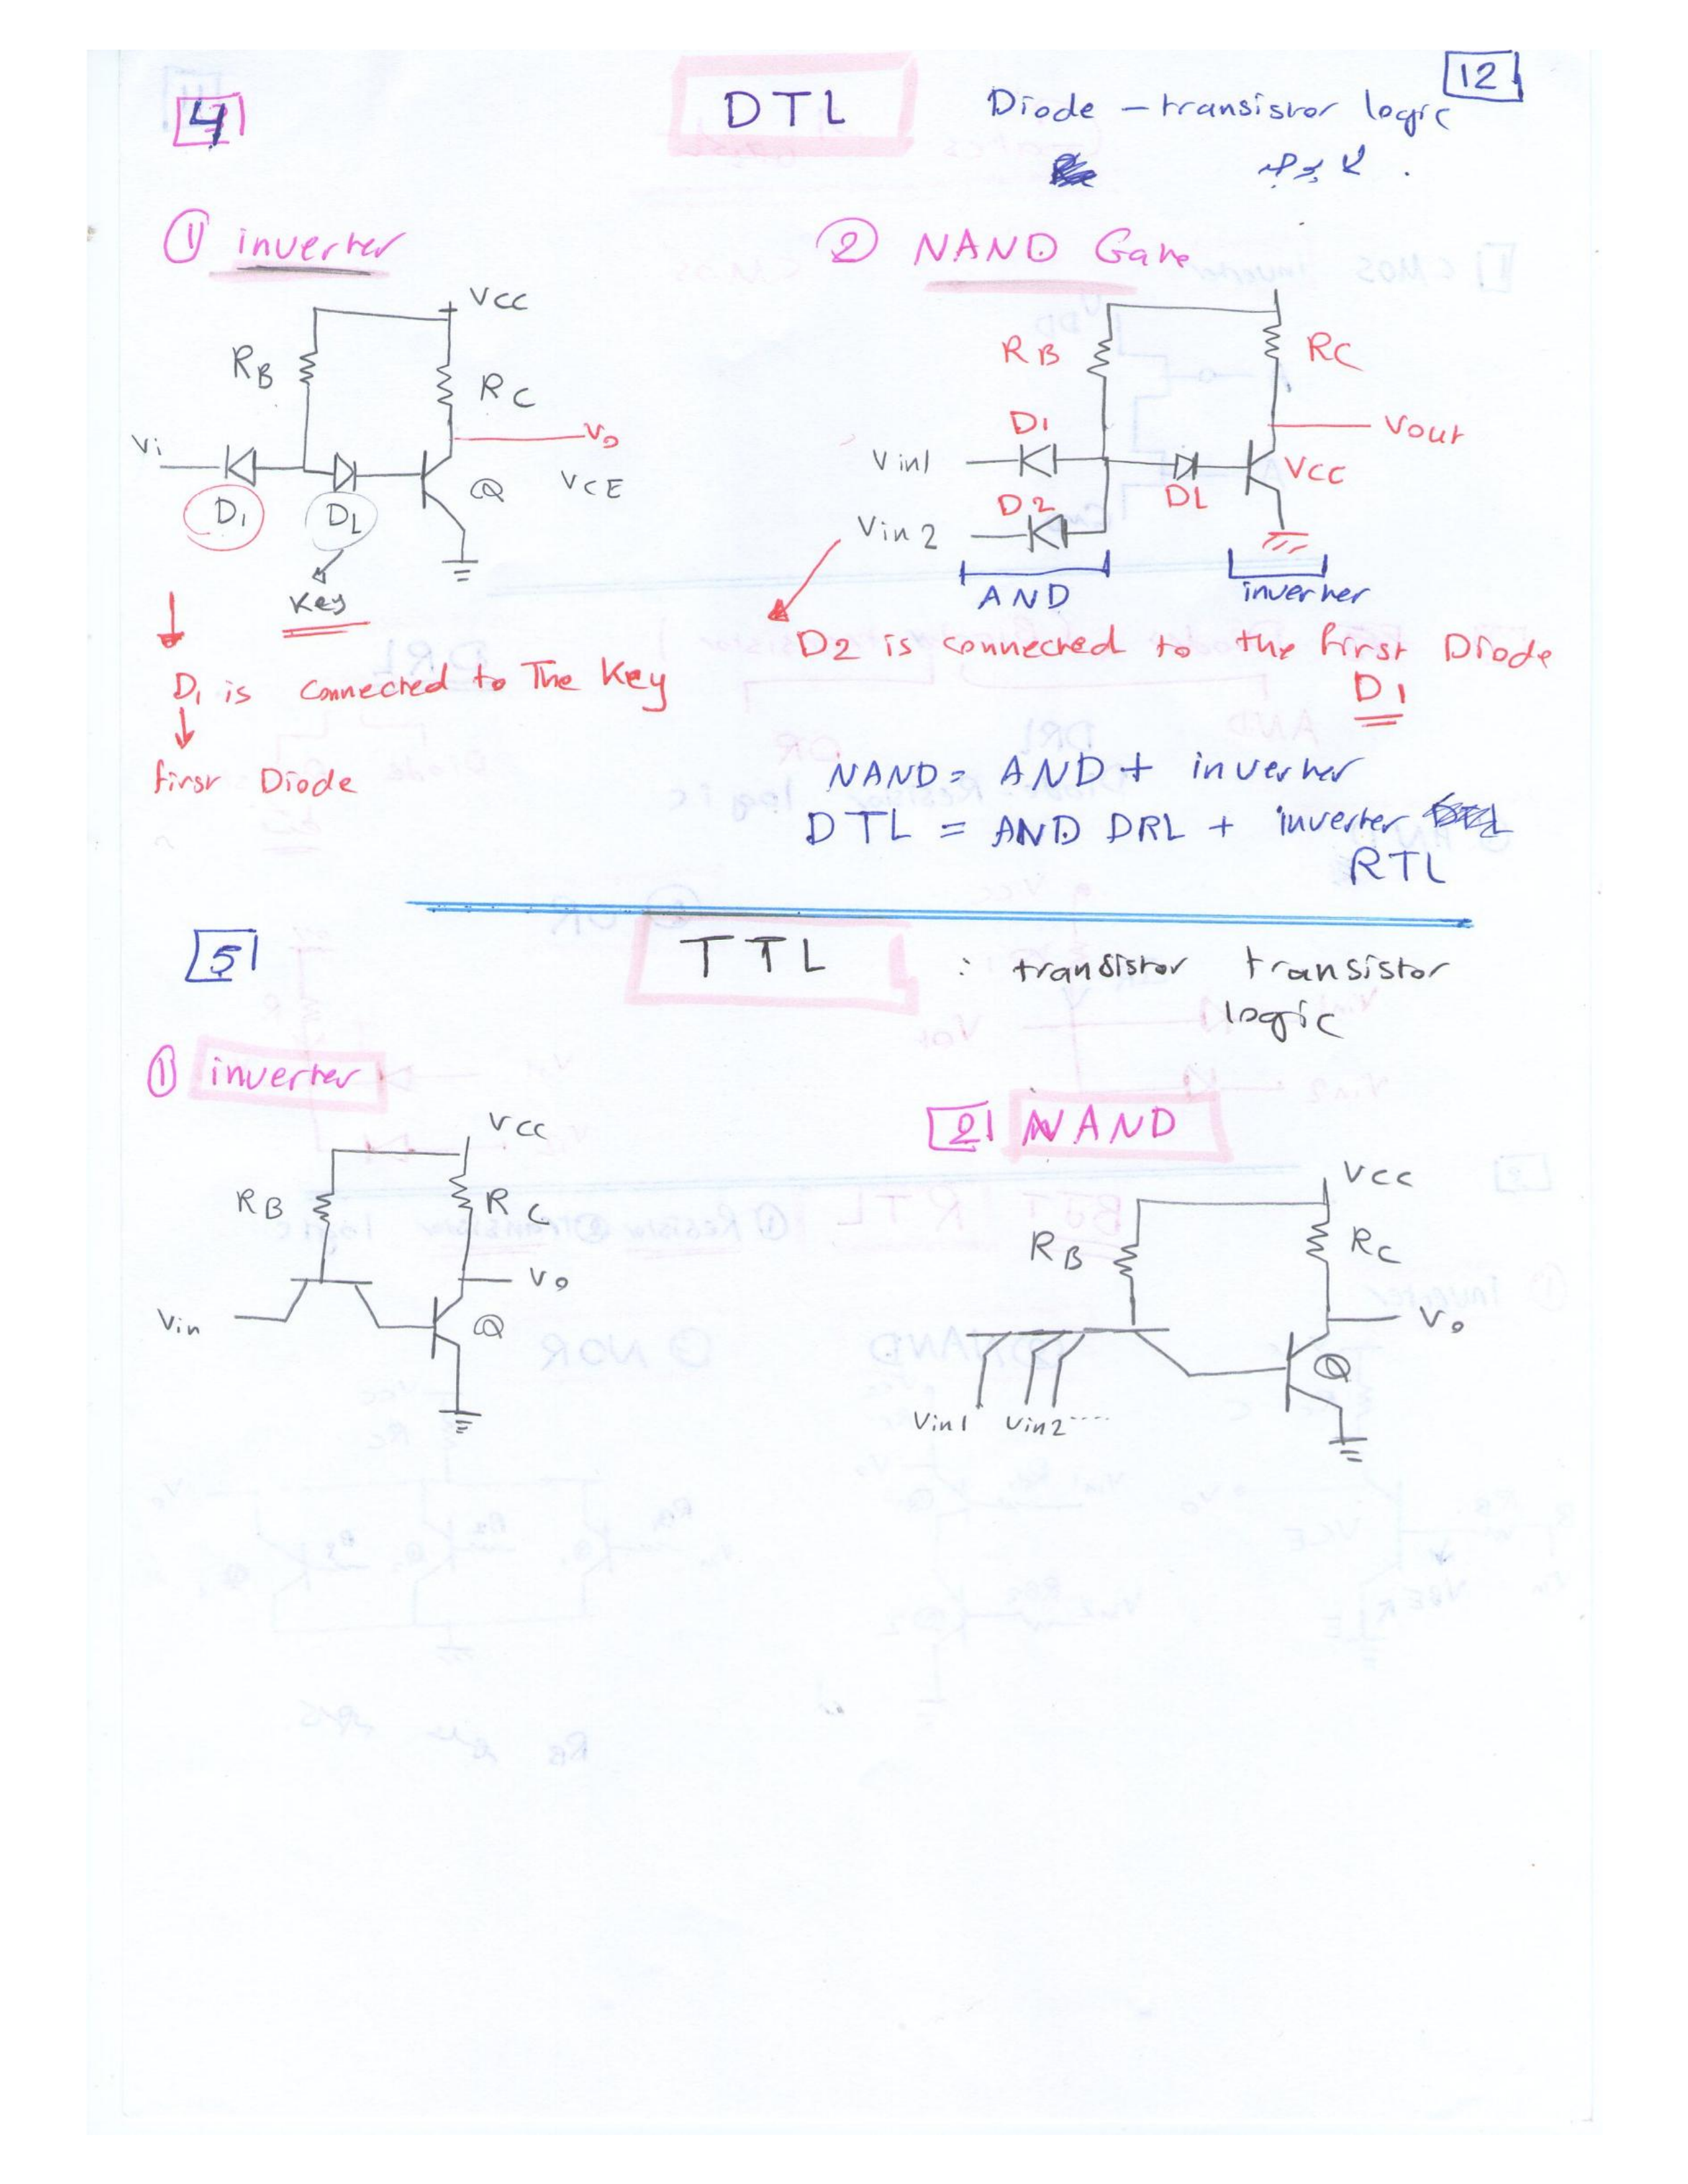 12
4
DTL
Diode - transistor logic
① inverter
VCC
RB
RC
Vi
Vo
VCE
Q
D1
DL
Key
D1 is connected to The Key
first Diode
② NAND Gate
RB
RC
D1
Vout
Vin1
VCC
D2
DL
Vin 2
AND
inverter
D2 is connected to the first Diode
D1
NAND = AND + inverter
DTL = AND DRL + inverter
RTL
5
TTL : transistor transistor
logic
① inverter
VCC
RB
RC
Vo
Vin
Q
2 NAND
VCC
RB
RC
Vo
Q
Vin1 Vin2 ----